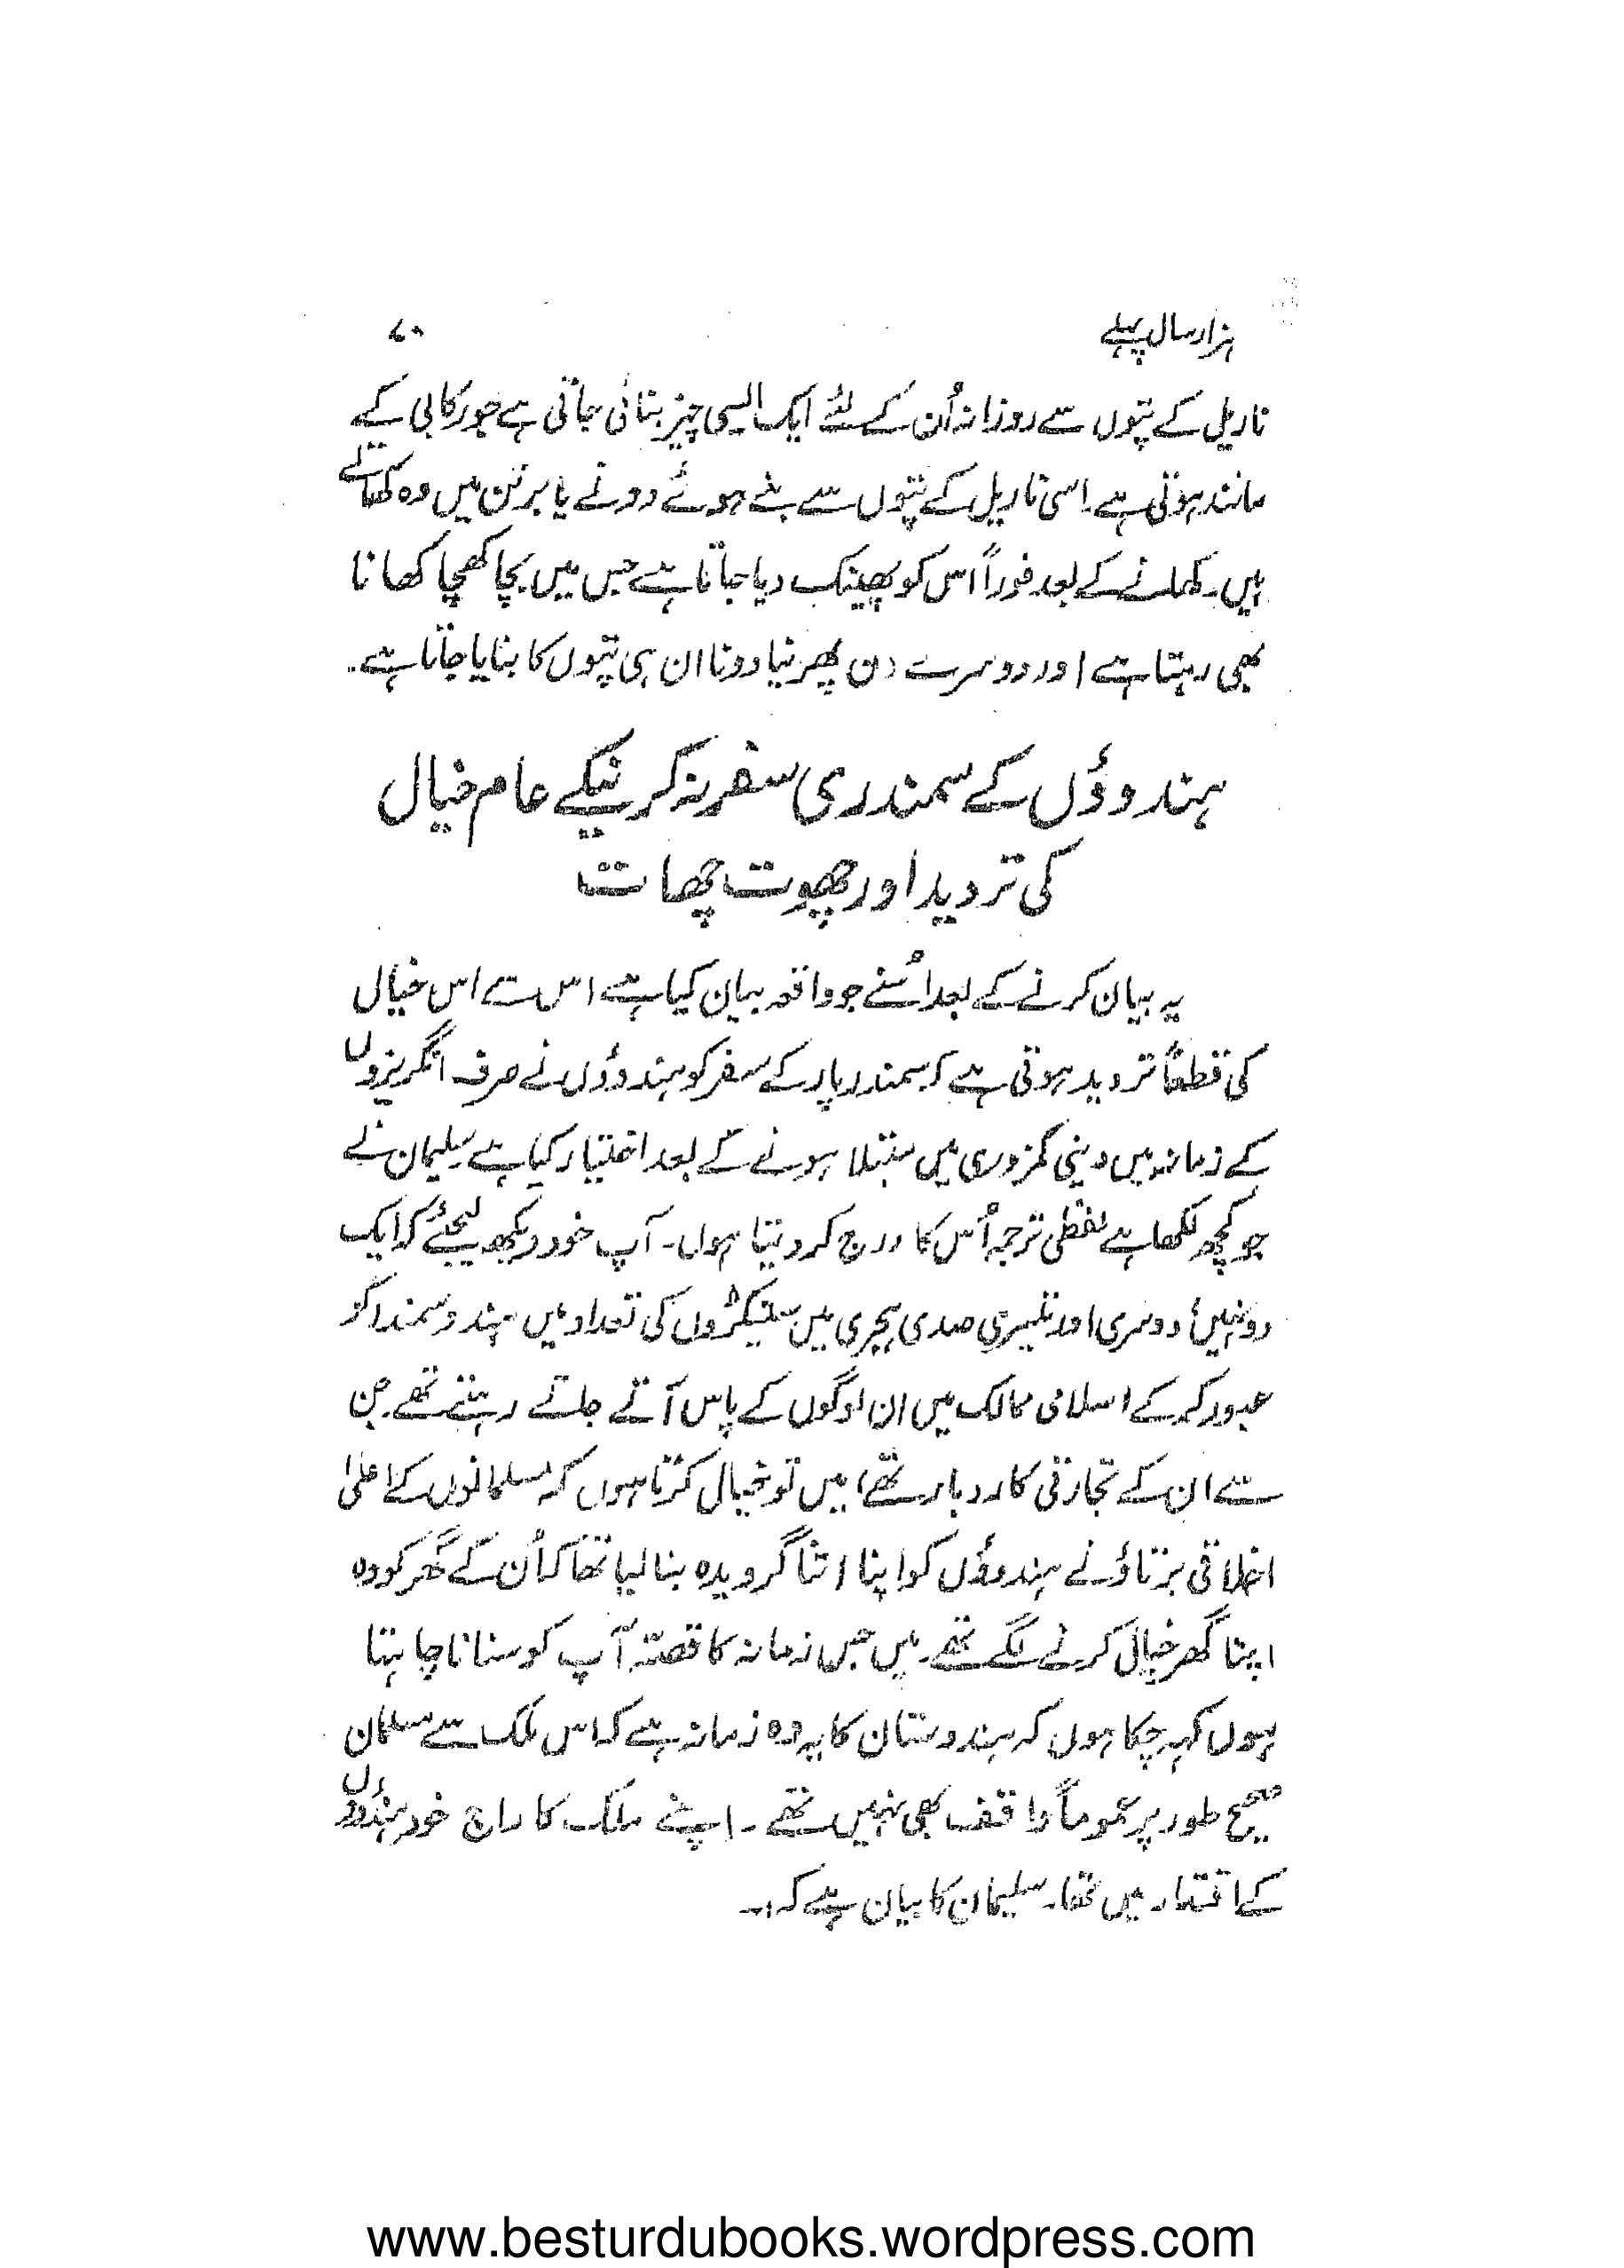 ہزار سال پہلے ۷۰
ناریل کے پتوں سے روزانہ اُن کے لئے ایک ایسی چیز بنائی جاتی ہے جو رکابی کے
مانند ہوتی ہے۔ اسی ناریل کے پتوں سے بنے ہوئے دونے یا برتن میں وہ کھاتے
ہیں۔ کھانے کے بعد فوراً اس کو پھینک دیا جاتا ہے جس میں بچا کھچا کھانا
بھی رہتا ہے اور دوسرے دن پھر نیا دونا ان ہی پتوں کا بنایا جاتا ہے۔
ہندوؤں کے سمندری سفر نہ کرنیکے عام خیال
کی تردید اور چھوت چھات
یہ بیان کرنے کے بعد اُسنے جو واقعہ بیان کیا ہے اس سے اس خیال
کی قطعاً تردید ہوتی ہے کہ سمندر پار کے سفر کو ہندوؤں نے صرف انگریزوں
کے زمانہ میں دینی کمزوری میں مبتلا ہونے کے بعد اختیار کیا ہے سلیمان نے
جو کچھ لکھا ہے لفظی ترجمہ اُس کا درج کر دیتا ہوں۔ آپ خود دیکھ لیجئے کہ ایک
دو نہیں، دوسری اور تیسری صدی ہجری میں سینکڑوں کی تعداد میں ہندو سمندر کو
عبور کر کے اسلامی ممالک میں ان لوگوں کے پاس آتے جاتے رہتے تھے جن
سے ان کے تجارتی کاروبار تھے، میں تو خیال کرتا ہوں کہ مسلمانوں کے اعلیٰ
اخلاقی برتاؤ نے ہندوؤں کو اپنا اتنا گرویدہ بنا لیا تھا کہ اُن کے گھر کو وہ
اپنا گھر خیال کرنے لگے تھے۔ میں جس زمانہ کا قصہ آپ کو سنانا چاہتا
ہوں کہہ چکا ہوں کہ ہندوستان کا یہ وہ زمانہ ہے کہ اس ملک سے مسلمان
صحیح طور پر عموماً واقف بھی نہیں تھے ۔ اپنے ملک کا راج خود ہندوؤں
کے اقتدار میں تھا۔ سلیمان کا بیان ہے کہ:۔
www.besturdubooks.wordpress.com